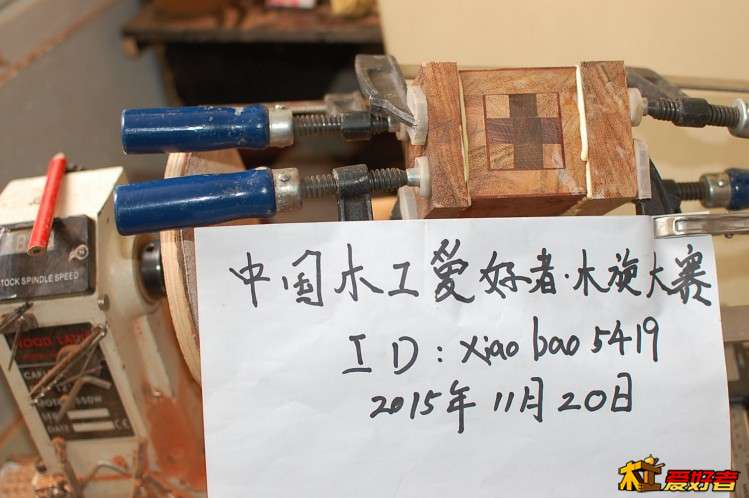 中国木工爱好者·木旋大赛
ID: xiaobao5419
2015年11月20日
STOCK SPINDLE SPEED
WOOD LATHE
DATE
CE
木工爱好者